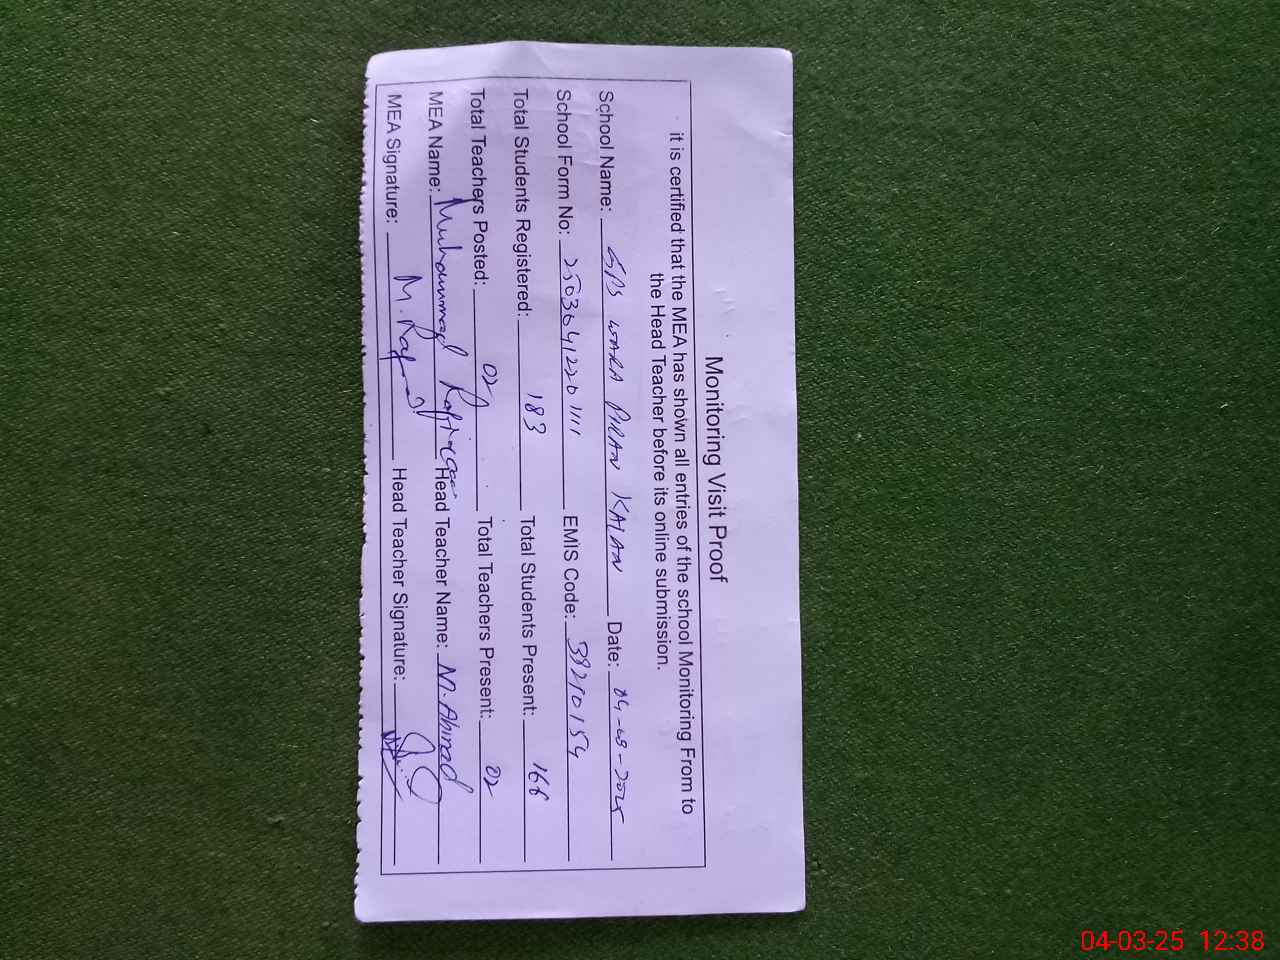 Monitoring Visit Proof
it is certified that the MEA has shown all entries of the school Monitoring From to
the Head Teacher before its online submission.
School Name: GPS WARA PIRAN KALAN Date: 04-03-2025
School Form No: 2503041220 1111 EMIS Code: 38210154
Total Students Registered: 183 Total Students Present: 166
Total Teachers Posted: 02 Total Teachers Present: 02
MEA Name: Muhammad Head Teacher Name: M. Ahmad
MEA Signature: Head Teacher Signature:
04-03-25 12:38